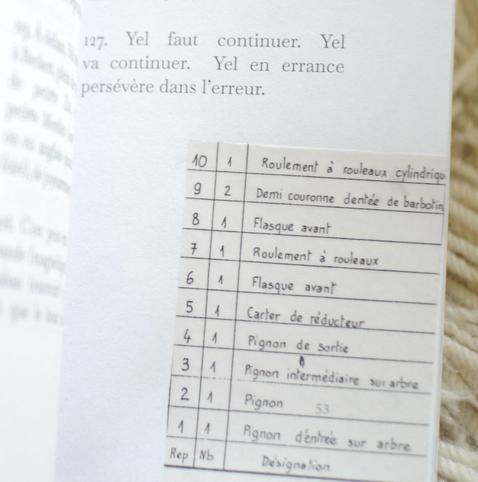 127. Yel faut continuer. Yel
va continuer. Yel en errance
persévère dans l'erreur.
10 1 Roulement à rouleaux cylindriqu
9 2 Demi couronne dentée de barbotin
8 1 Flasque avant
7 1 Roulement à rouleaux
6 1 Flasque avant
5 1 Carter de réducteur
4 1 Pignon de sortie
3 1 Pignon intermédiaire sur arbre
2 1 Pignon 53
1 1 Pignon d'éntrée sur arbre
Rep Nb Désignation